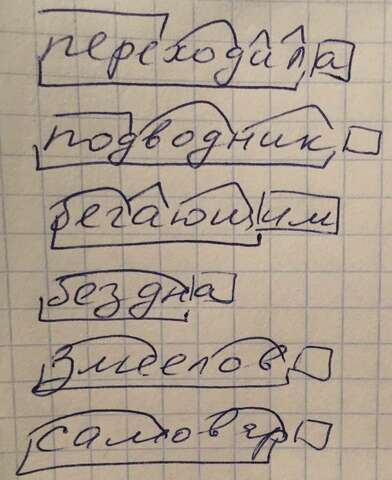 переходила
подводник
бегающим
бездна
змеелов
самовар